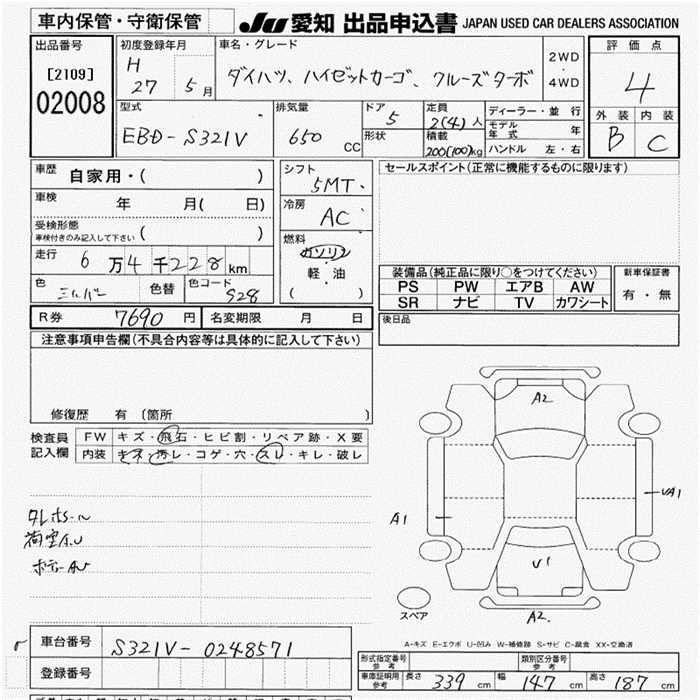 車内保管・守衛保管 JU 愛知 出品申込書 JAPAN USED CAR DEALERS ASSOCIATION
出品番号
[2109]
02008
初度登録年月
H
27 5月
車名・グレード
ダイハツ、ハイゼットカーゴ、クルーズターボ
2WD
・
4WD
評価点
4
外装 内装
B C
型式
EBD-S321V
排気量
650 CC
ドア
5
形状
定員
2(4)人
積載
200(100)kg
ディーラー・並行
モデル年式 年
ハンドル 左・右
車歴 自家用・( )
車検 年 月( 日)
受検形態
車検付きのみ記入して下さい ( )
走行 6万4千228km
色 シルバー 色替 色コード S28
シフト
5MT
冷房
AC
燃料
ガソリン
・
軽・油
( )
セールスポイント(正常に機能するものに限ります)
装備品(純正品に限り○をつけてください)
PS PW エアB AW
SR ナビ TV カワシート
新車保証書
有・無
R券 7690円 名変期限 月 日
後日品
注意事項申告欄(不具合内容等は具体的に記入して下さい)
修復歴 有〔箇所 〕
検査員記入欄 FW キズ・飛石・ヒビ割・リペア跡・X要
内装 キズ・汚レ・コゲ・穴・スレ・キレ・破レ
A2
A1
UA1
U1
A2
スペア
A-キズ E-エクボ U-凹み W-補修跡 S-サビ C-腐食 XX-交換済
車台番号 S321V-0248571
登録番号
形式指定番号
参考
類別区分番号
参考
車庫証明用
参考
長さ 339cm 幅 147cm 高さ 187cm